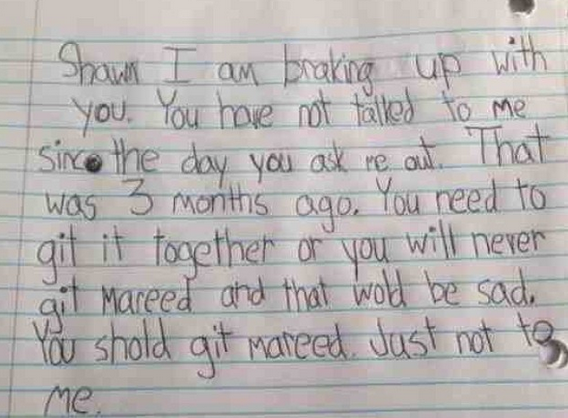 Shawn I am braking up with
you. You have not talked to me
since the day you ask me out. That
was 3 months ago. You need to
git it together or you will never
git mareed and that wold be sad.
You shold git mareed. Just not to
me.